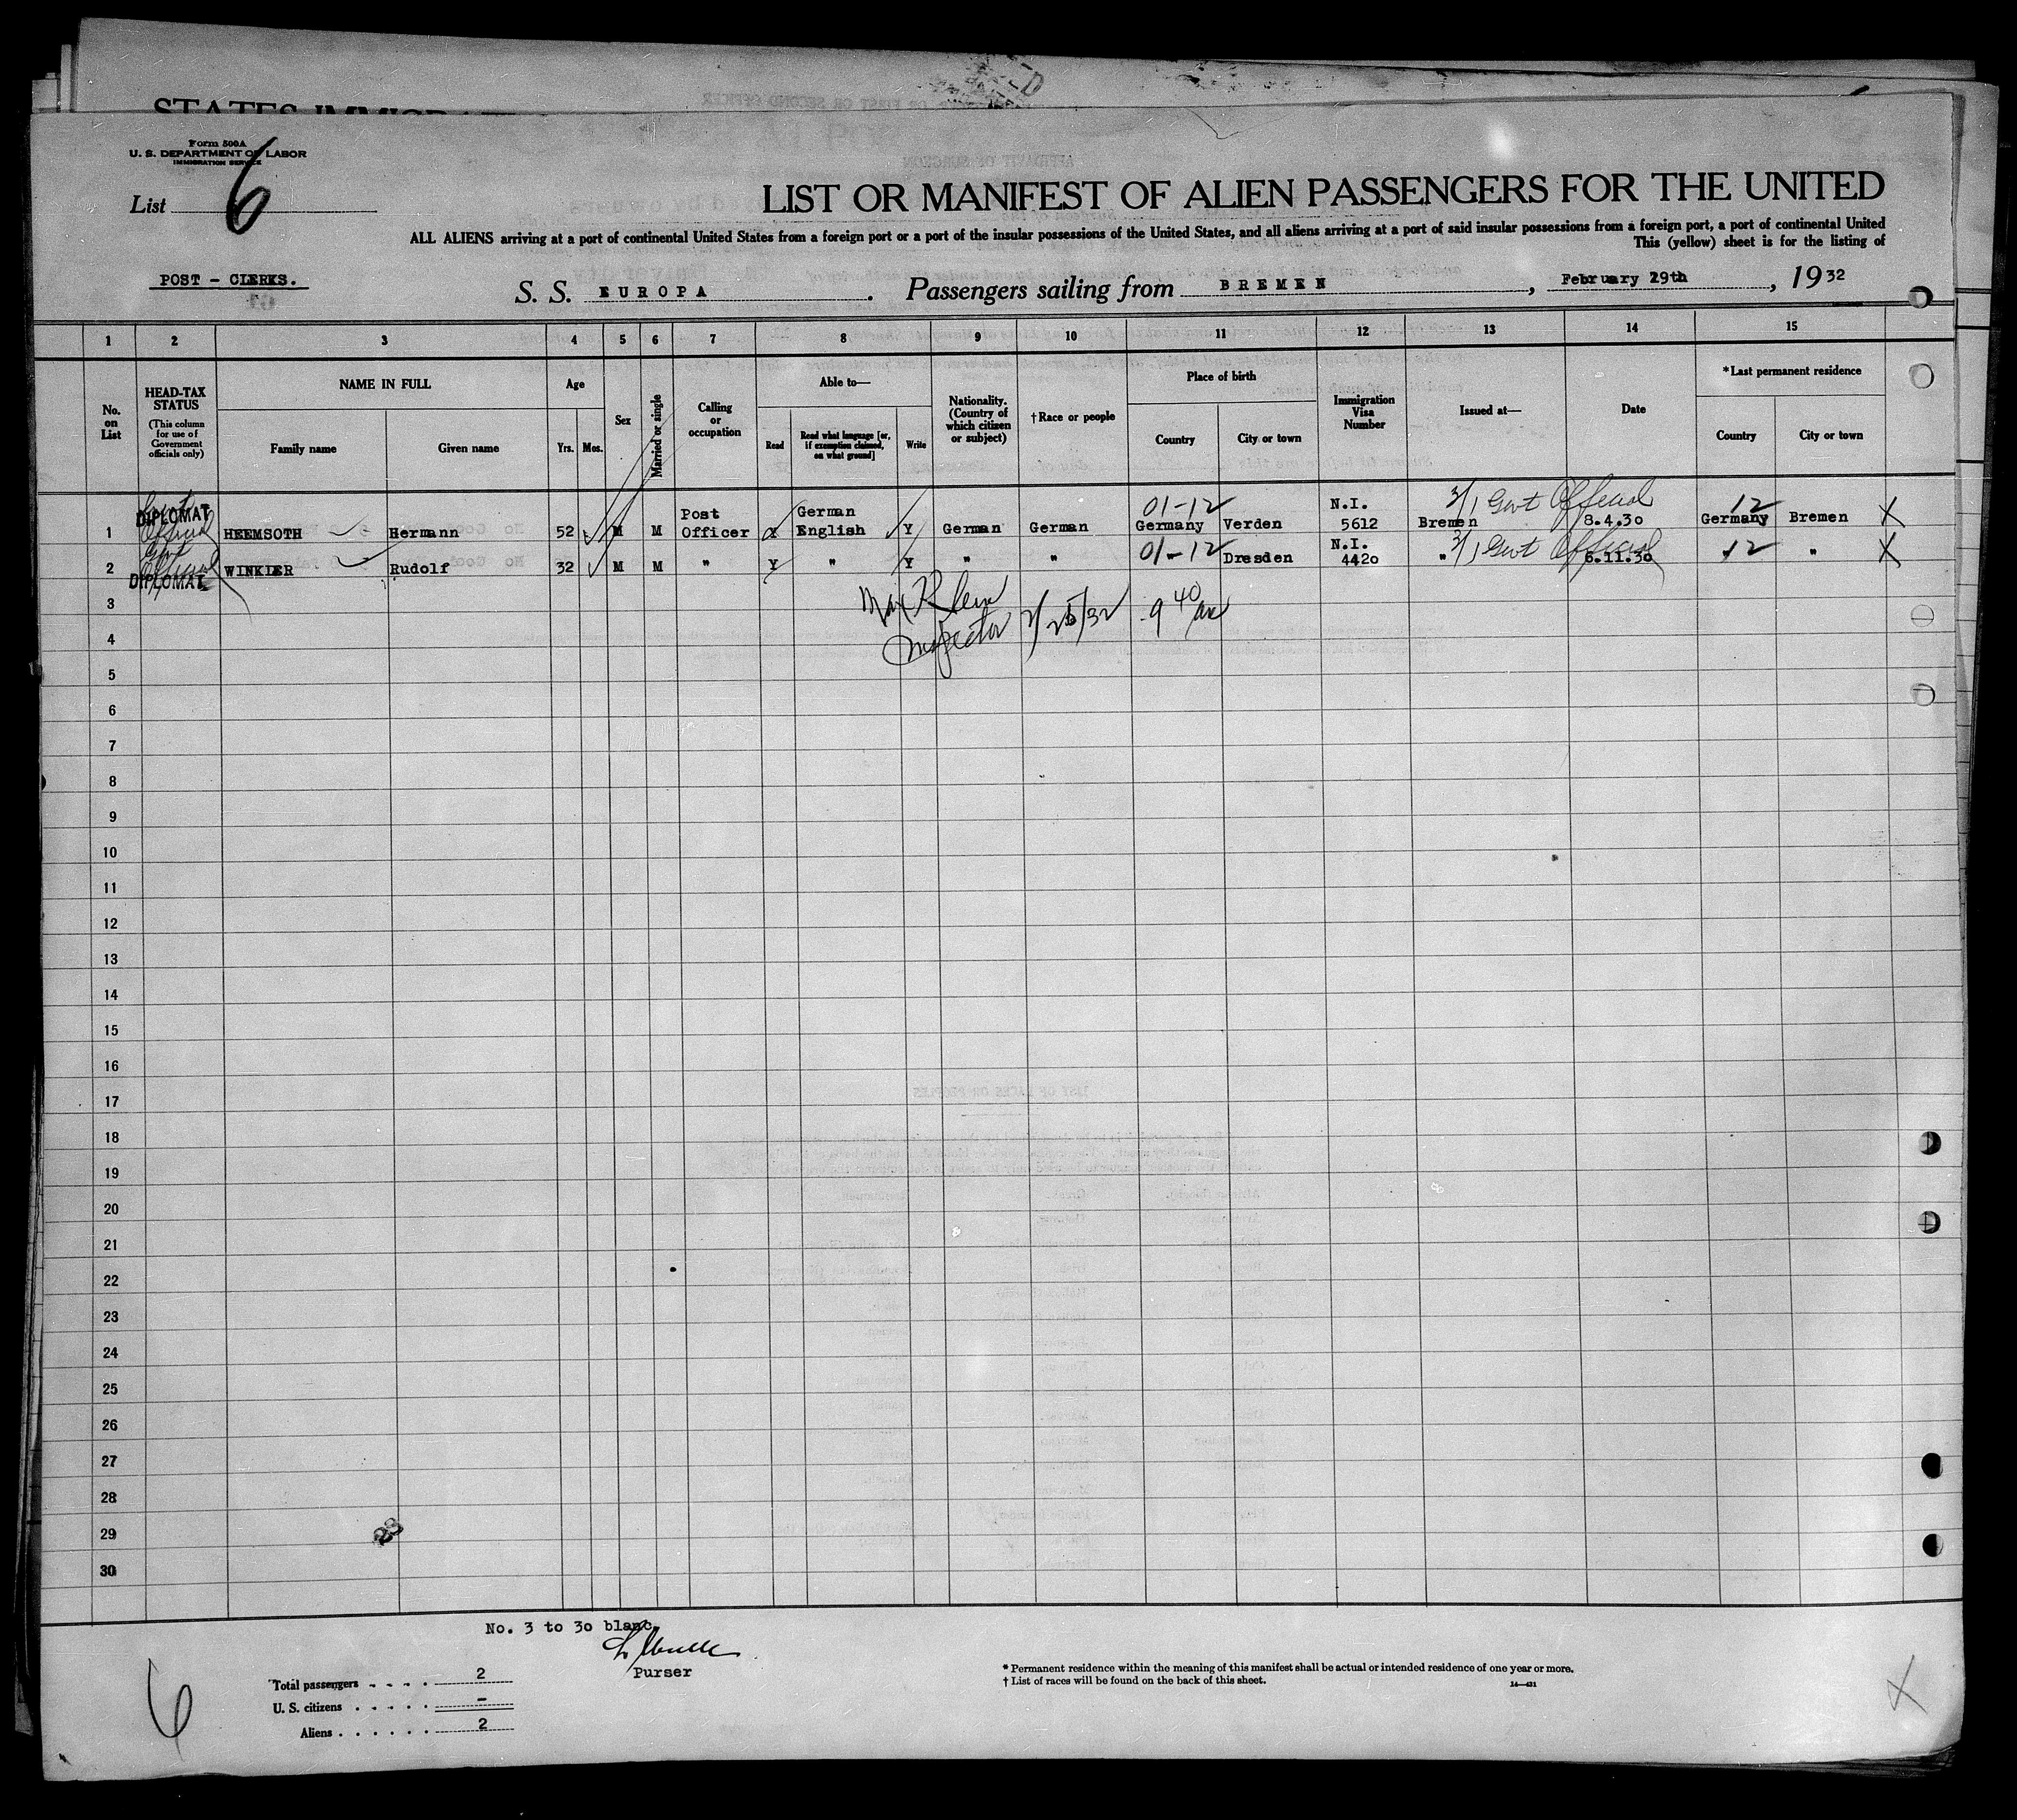 STATES IMMIGRA
Form 500A
U. S. DEPARTMENT OF LABOR
IMMIGRATION SERVICE
List 6
LIST OR MANIFEST OF ALIEN PASSENGERS FOR THE UNITED
ALL ALIENS arriving at a port of continental United States from a foreign port or a port of the insular possessions of the United States, and all aliens arriving at a port of said insular possessions from a foreign port, a port of continental United
This (yellow) sheet is for the listing of
POST - CLERKS.
S. S. EUROPA. Passengers sailing from BREMEN, February 29th, 1932
1 2 3 4 5 6 7 8 9 10 11 12 13 14 15
No. on List
HEAD-TAX STATUS (This column for use of Government officials only)
NAME IN FULL
Family name
Given name
Age
Yrs. Mos.
Sex
Married or single
Calling or occupation
Able to—
Read
Read what language [or, if exemption claimed, on what ground]
Write
Nationality. (Country of which citizen or subject)
† Race or people
Place of birth
Country
City or town
Immigration Visa Number
Issued at—
Date
*Last permanent residence
Country
City or town
1 DIPLOMAT Govt Official HEEMSOTH Hermann 52 M M Post Officer Y German English Y German German 01-12 Germany Verden N.I. 5612 Bremen 3/1 Govt Official 8.4.30 12 Germany Bremen X
2 Govt Official DIPLOMAT WINKLER Rudolf 32 M M " Y " Y " " 01-12 Dresden N.I. 4420 " 3/1 Govt Official 6.11.30 12 " X
3
Max Klein
Inspector 9 40 am
4
5
6
7
8
9
10
11
12
13
14
15
16
17
18
19
20
21
22
23
24
25
26
27
28
29
30
No. 3 to 30 blanc.
Purser
6
Total passengers 2
U. S. citizens -
Aliens 2
* Permanent residence within the meaning of this manifest shall be actual or intended residence of one year or more.
† List of races will be found on the back of this sheet.
14—431
X